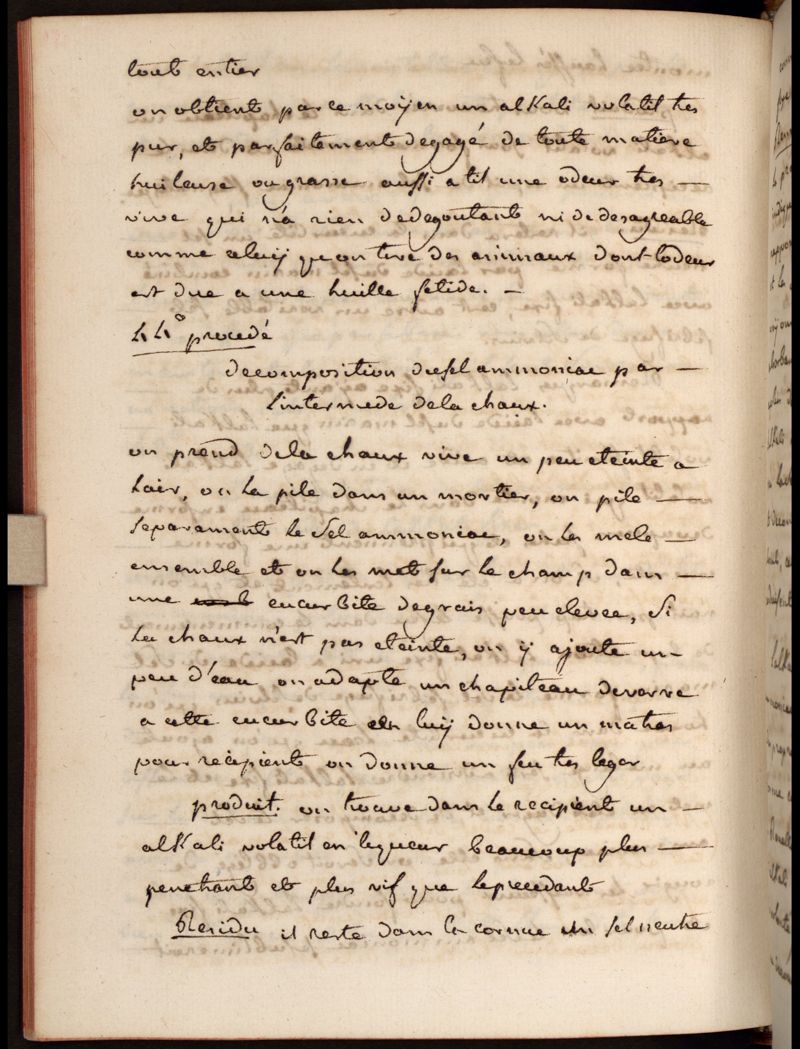 tout entier
on obtient par ce moyen un alKali volatil tres
pur, et parfaitement degagé de toute matiere
huileuse ou grasse aussi a til une odeur tres —
vive qui n'a rien de degoutant ni de desagreable
comme celuy qu'on tire des animaux dont lodeur
est due a une huille fetide. —
44° procedé
decomposition du sel ammoniac par —
l'intermede de la chaux.
on prend de la chaux vive un peu eteinte a
l'air, on la pile dans un mortier, on pile —
separement le Sel ammoniac, on les mele —
ensemble et on les met sur le champ dans —
une cucurBite de grais peu elevee, Si
la chaux n'est pas eteinte, on y ajoute un
peu d'eau on adapte un chapiteau de verre
a cette cucurBite et on luy donne un matras
pour recipient on donne un feu tres leger
produit. on trouve dans le recipient un —
alKali volatil en liqueur beaucoup plus —
penetrant et plus vif que le precedent
Residu il reste dans la cornue un sel neutre